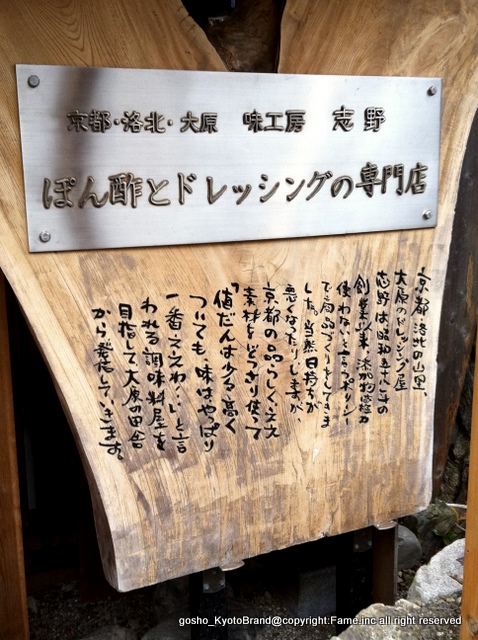 京都・洛北・大原 味工房 志野
ぽん酢とドレッシングの専門店
京都洛北の山里、
大原のドレッシング屋
志野は昭和五十八年の
創業以来、添加物極力
使わないと言うポリシー
で商品づくりをしてきま
した。当然日持ちが
悪くなったりしますが、
京都の品らしく、ええ
素材をどっさり使って
「値だんは少々高く
ついても味はやっぱり
一番ええわ…」と言
われる調味料屋を
目指して大原の田舎
から発信していきます。
gosho_KyotoBrand@copyright:Fame.inc all right reserved